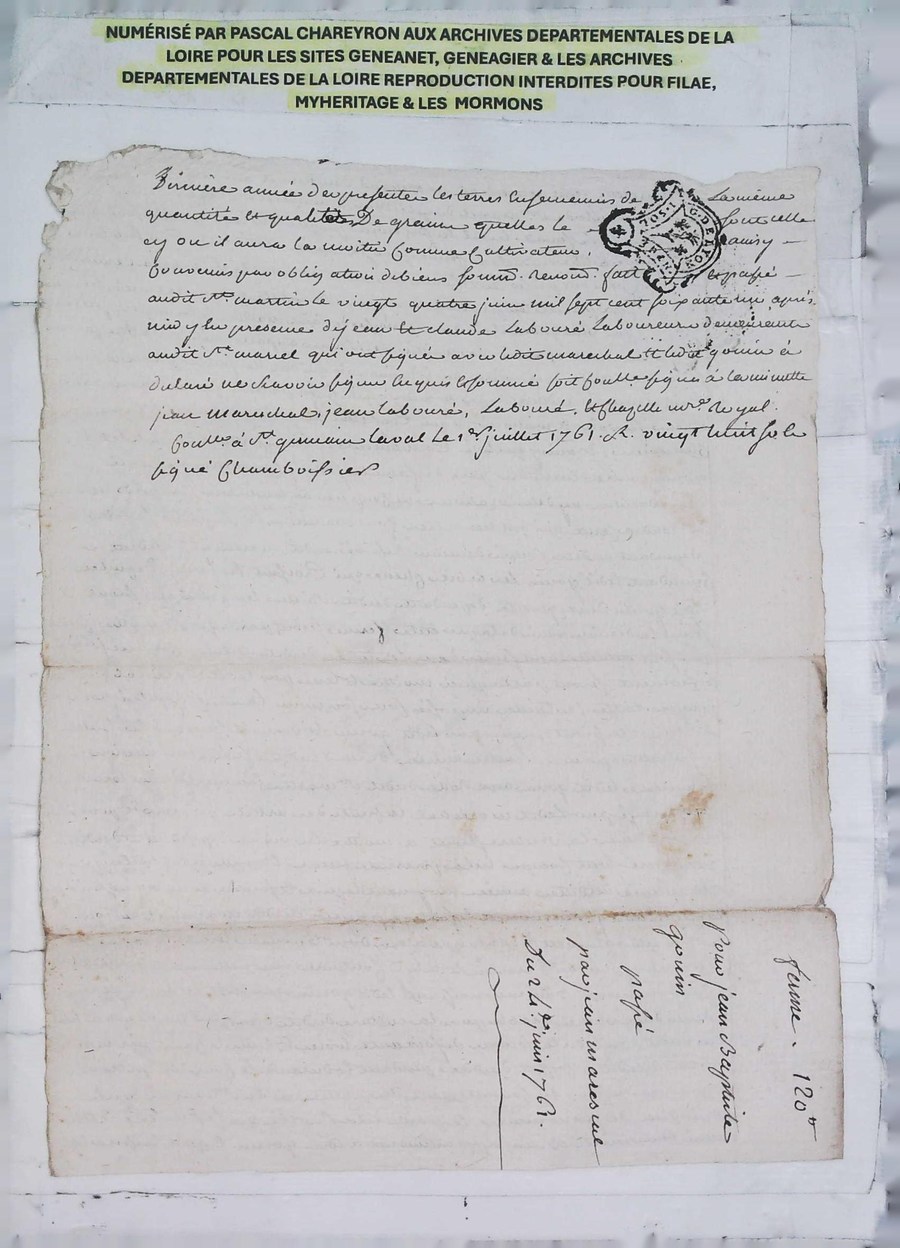 NUMÉRISÉ PAR PASCAL CHAREYRON AUX ARCHIVES DEPARTEMENTALES DE LA
LOIRE POUR LES SITES GENEANET, GENEAGIER & LES ARCHIVES
DEPARTEMENTALES DE LA LOIRE REPRODUCTION INTERDITES POUR FILAE,
MYHERITAGE & LES MORMONS
Dernière année des presentes les terres Ensemencés de La même
quantité et qualités De grains quelles le sont celle
cy ou il aura la moitié Comme Cultivateur.
Convenus par obligation de biens soum. renon. fait et passé
audit St martin le vingt quatre juin mil sept cent soixante un après
midy En presence de jean et claude Labouré Laboureurs demeurants
audit St qui ont signés avec ledit marechal et ledit gouin a
declaré ne scavoir signer Enquis et sommé soit signé à la minutte
jean Marechal, jean labouré, Labouré, et Chazelle Royal.
à St germain laval Le 1er juillet 1761. R. vingt huit sols
signé Chamboissier
G. DE LYON
ferme. 120
Pour jean Baptiste
gouin
passé
par jean marechal
Du 24e juin 1761.